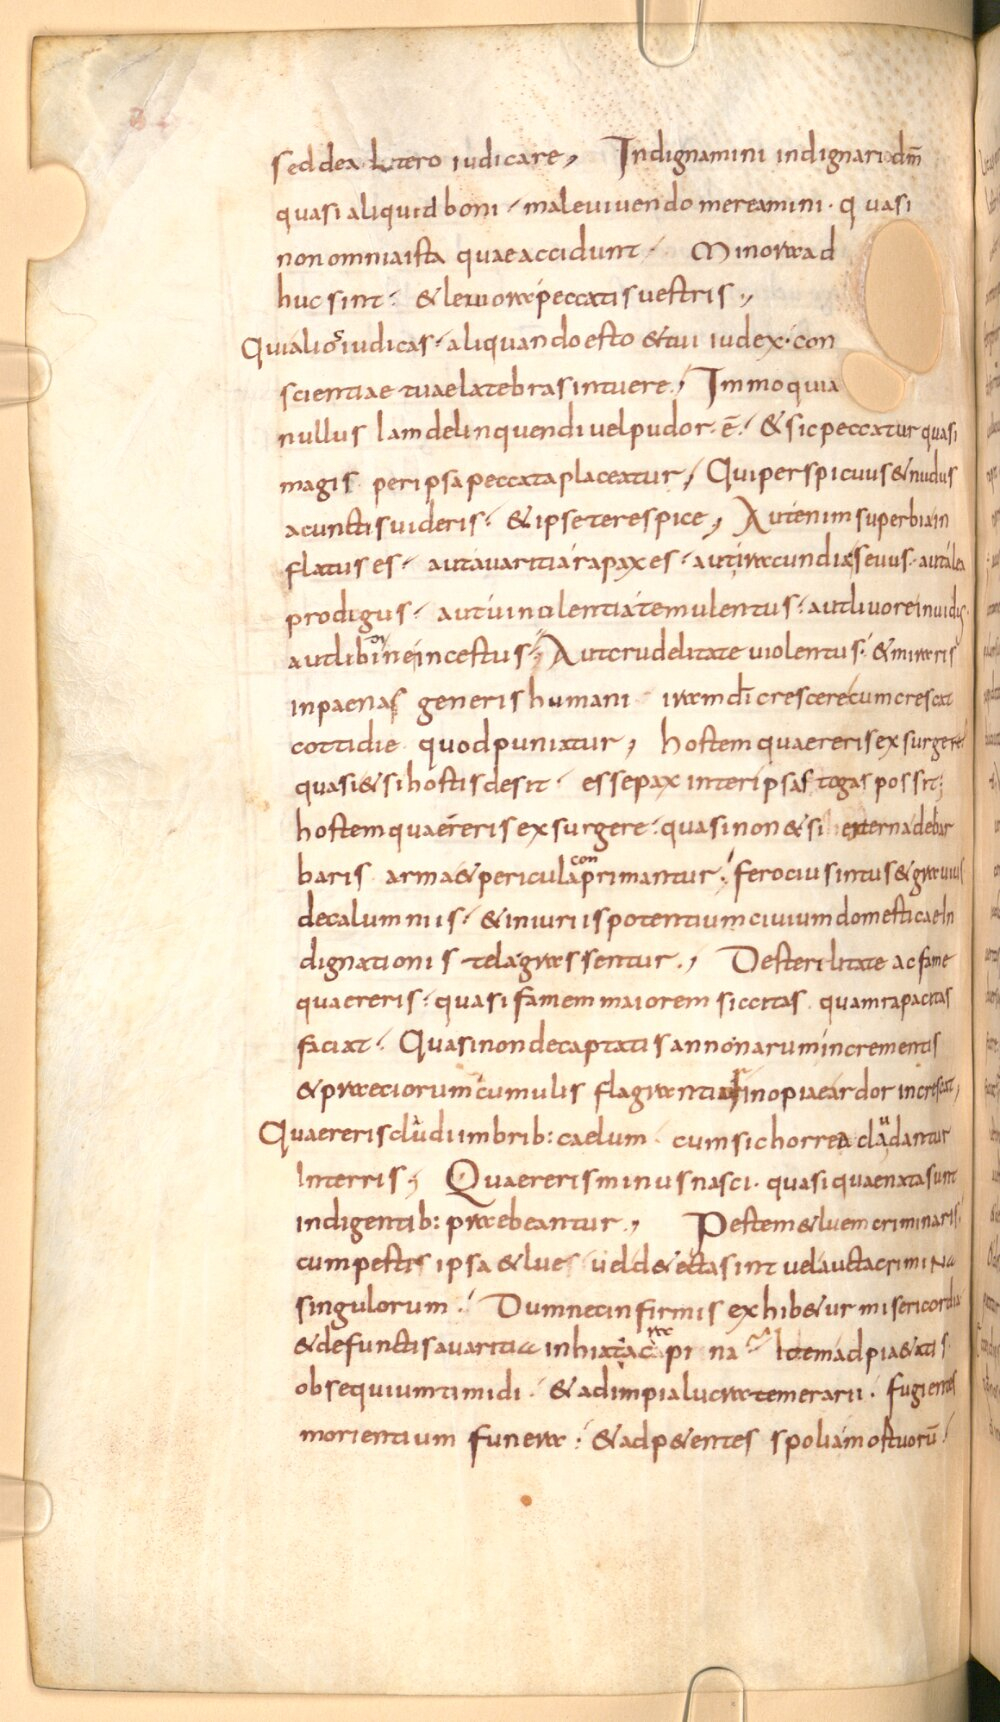 sed de altero iudicare, Indignamini indignari dm̄
quasi aliquid boni male uiuendo mereamini · quasi
non omnia ista quae accidunt · Minora ad
huc sint · & leuiora peccatis uestris.,
Qui alios iudicas · aliquando esto & tui iudex · con
scientiae tuae latebras intuere, Immo quia
nullus iam delinquendi uel pudor · ē · & sic peccatur quasi
magis per ipsa peccata placeatur, Qui perspicuus & nudus
a cunctis uideris · & ipse te respice, Aut enim superbia in
flatus es · aut auaritia rapax es · aut iracundia seuus · aut alea
prodigus · aut uinolentia temulentus · aut liuore inuidus ·
aut libi ne incestus · Aut crudelitate uiolentus · & miraris
in paenas generis humani iram dī crescere cum crescat
cottidie quod puniatur, hostem quaereris exsurgere
quasi & si hostis desit · esse pax inter ipsas togas possit;
hostem quaereris exsurgere · quasi non & si externa de bar
baris arma & pericula conprimantur · ferocius intus & grauius
de calumniis · & iniuriis potentium ciuium domesticae In
dignationis tela grassentur., De sterilitate ac fame
quaereris · quasi famem maiorem siccitas quam rapacitas
faciat · Quasi non de captatis annonarum incrementis
& praeciorum cumulis flagrantia inopiae ardor increscat,
Quaereris cludi imbrib: caelum · cum sic horrea cludantur
Interris, Quaereris minus nasci · quasi quae nata sunt
indigentib: praebeantur, Pestem & luem criminaris ·
cum pestis ipsa & lues uel detecta sint uel aucta crimina
singulorum · Dum nec infirmis exhib&ur misericordia
& defunctis auaritia inhiat ac rapina Idem ad pi&atis
obsequium timidi · & ad impia lucra temerarii · fugientes
morientium funera · & adp&entes spolia mortuorū ·